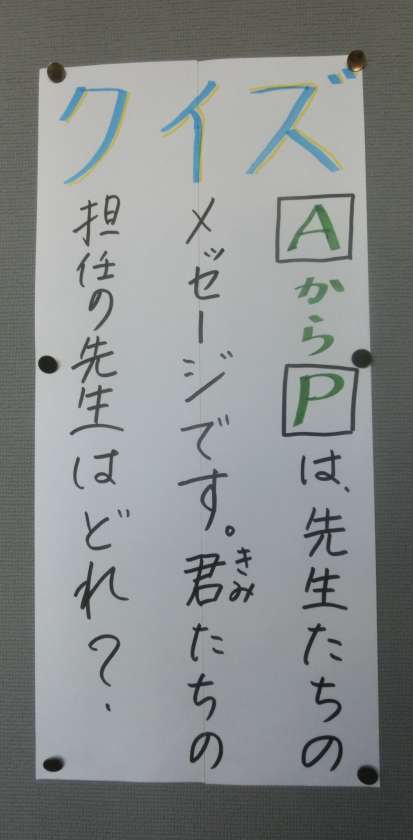 クイズ
AからPは、先生たちの
メッセージです。君たちの
きみ
担任の先生はどれ？